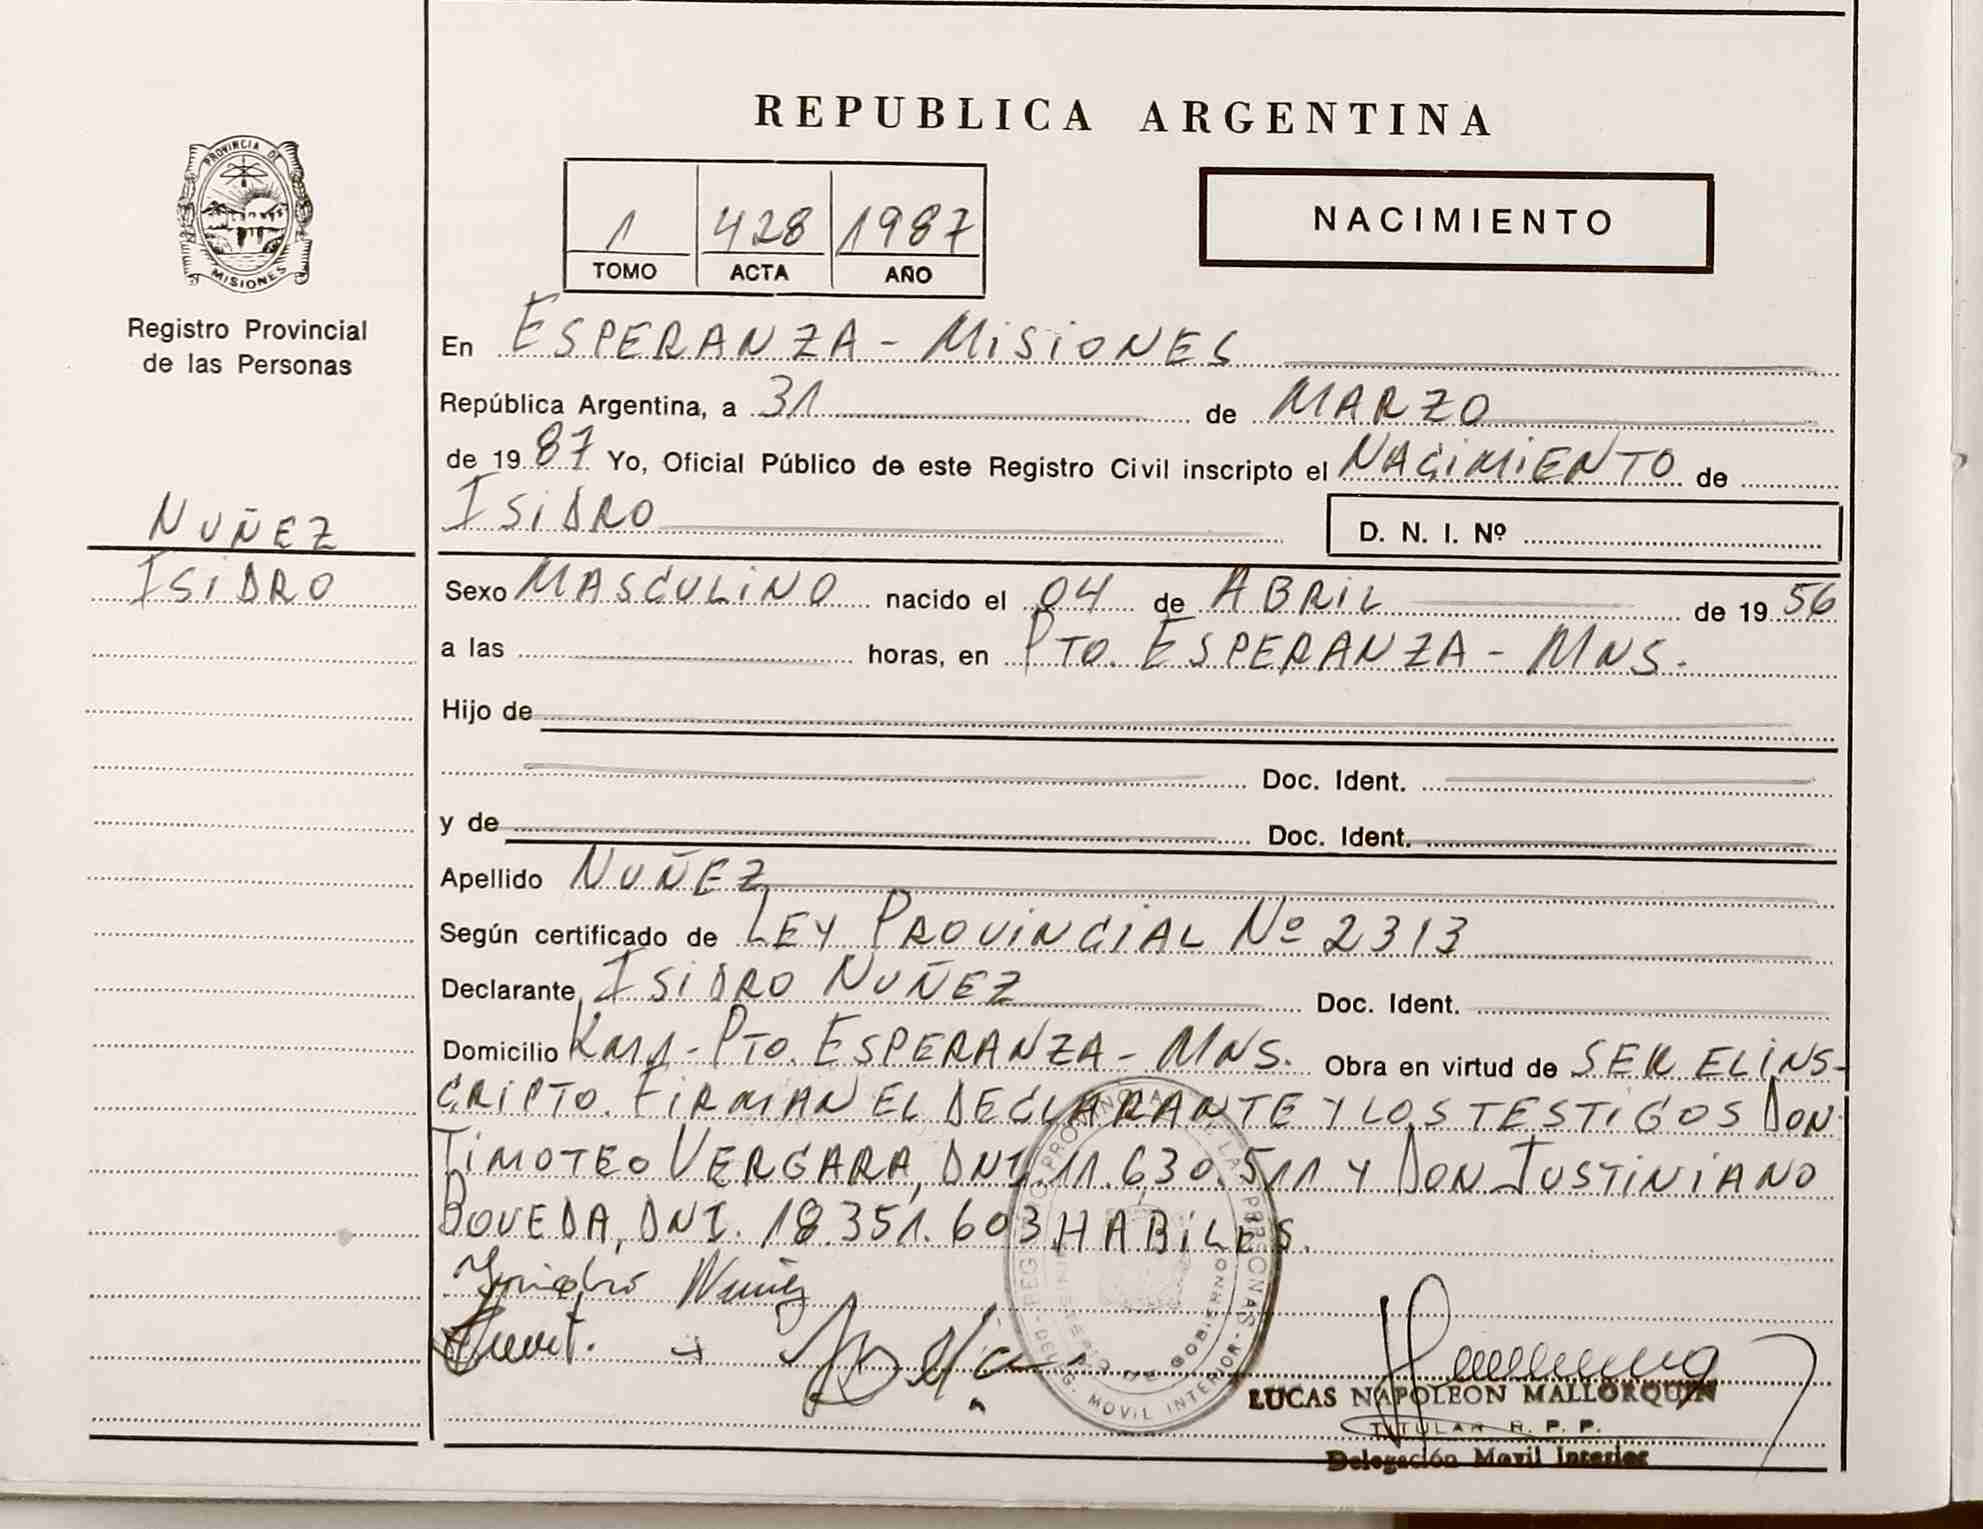 REPUBLICA ARGENTINA
PROVINCIA DE MISIONES
Registro Provincial
de las Personas
1 428 1987
TOMO ACTA AÑO
NACIMIENTO
En ESPERANZA - MISIONES
República Argentina, a 31 de MARZO
de 1987 Yo, Oficial Público de este Registro Civil inscripto el NACIMIENTO de
ISIDRO D. N. I. Nº
NUÑEZ
ISIDRO
Sexo MASCULINO nacido el 04 de ABRIL de 1956
a las horas, en PTO. ESPERANZA - MNS.
Hijo de
Doc. Ident.
y de Doc. Ident.
Apellido NUÑEZ
Según certificado de LEY PROVINCIAL Nº 2313
Declarante ISIDRO NUÑEZ Doc. Ident.
Domicilio KM1 - PTO. ESPERANZA - MNS. Obra en virtud de SER EL INS-
CRIPTO. FIRMAN EL DECLARANTE Y LOS TESTIGOS DON
TIMOTEO VERGARA, DNI. 11.630.511 Y DON JUSTINIANO
BOVEDA, DNI. 18.351.603 HABILES.
Nuñez
REGISTRO PROVINCIAL DE LAS PERSONAS
MINISTERIO DE GOBIERNO
- DELEG. MOVIL INTERIOR -
LUCAS NAPOLEON MALLORQUIN
TITULAR R. P. P.
Delegación Movil Interior